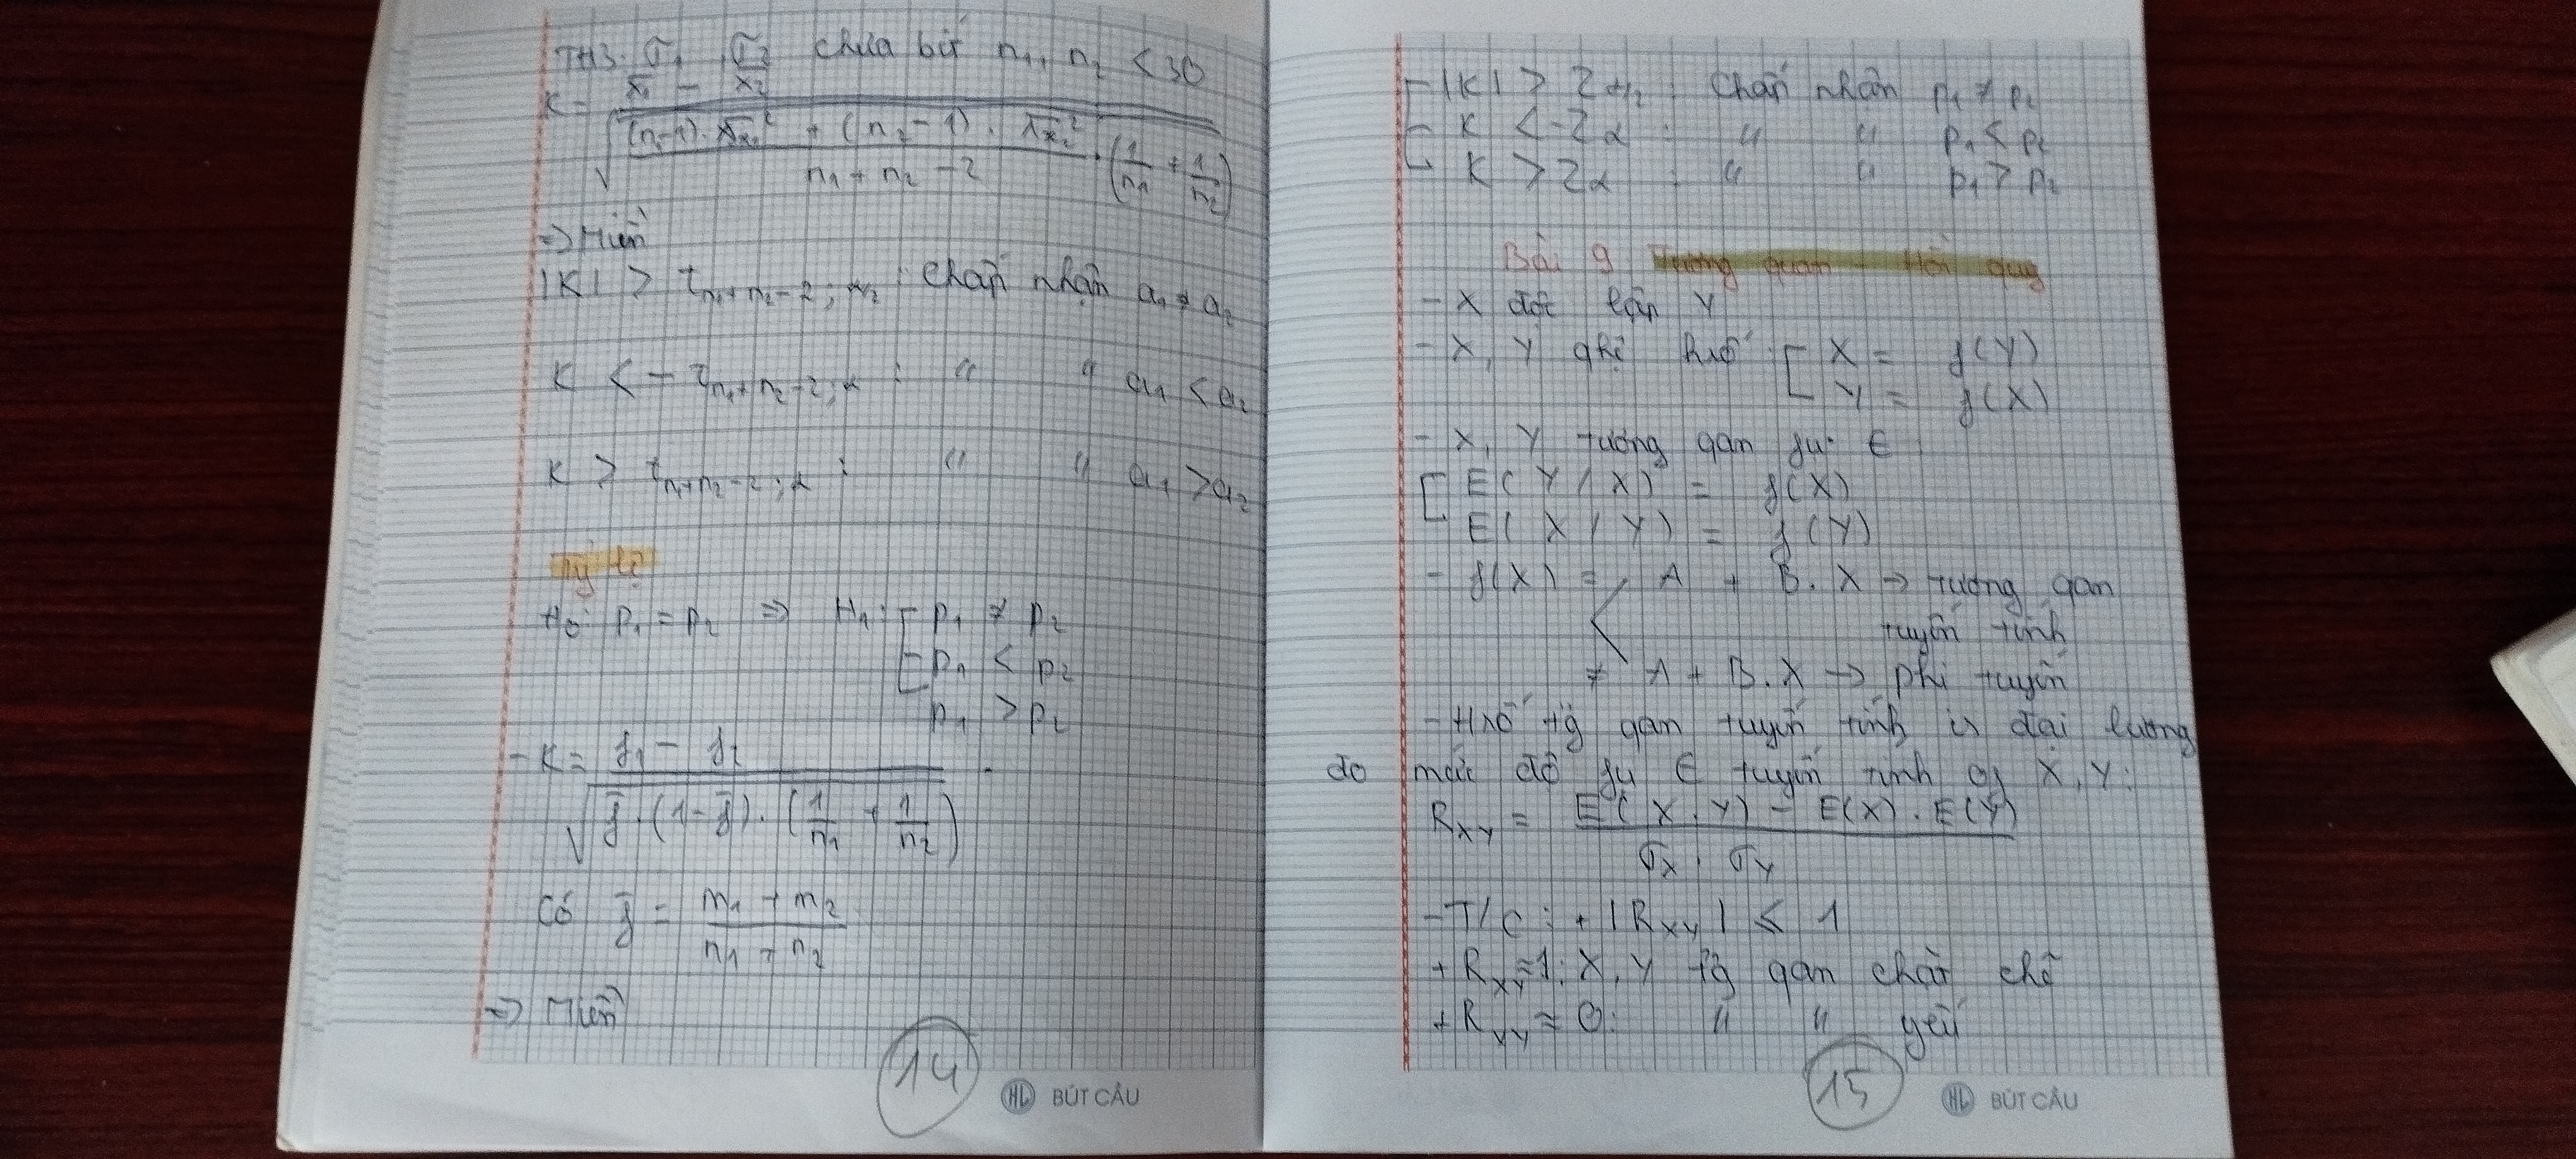 TH3: σ₁, σ₂ chưa biết n₁, n₂ < 30
K = (x̄₁ − x̄₂) / √( ((n₁-1).s̄ₓ₁² + (n₂-1).s̄ₓ₂²) / (n₁ + n₂ - 2) . (1/n₁ + 1/n₂) )
=> Miền
|K| > t n₁+n₂-2; α/2 : chấp nhận a₁ ≠ a₂
K < - t n₁+n₂-2; α : " " a₁ < a₂
K > t n₁+n₂-2; α : " " a₁ > a₂
Tỷ lệ
H₀: p₁ = p₂ => H₁: [ p₁ ≠ p₂
p₁ < p₂
p₁ > p₂
- K = (f₁ - f₂) / √( f̄ . (1-f̄) . (1/n₁ + 1/n₂) )
Có f̄ = (m₁ + m₂) / (n₁ + n₂)
=> Miền
14
HL BÚT CÂU
|K| > Z α/2 : Chấp nhận p₁ ≠ p₂
K < -Z α : " " p₁ < p₂
K > Z α : " " p₁ > p₂
Bài 9 Tương quan - Hồi quy
- X độc lập Y
- X, Y phụ thuộc [ X = f(Y)
Y = f(X)
- X, Y tương qan fụ € :
[ E(Y/X) = f(X)
E(X/Y) = f(Y)
- f(X) = A + B.X -> tương qan
tuyến tính
≠ A + B.X -> phi tuyến
- Hsố tg̃ qan tuyến tính is đại lượng
đo mức độ fụ € tuyến tính of X, Y:
R XY = (E(X.Y) - E(X).E(Y)) / (σ X . σ Y)
- T/C: + |R XY| ≤ 1
+ R XY ≈ 1: X, Y tg̃ qan chặt chẽ
+ R XY ≈ 0: " " yếu
15
HL BÚT CÂU